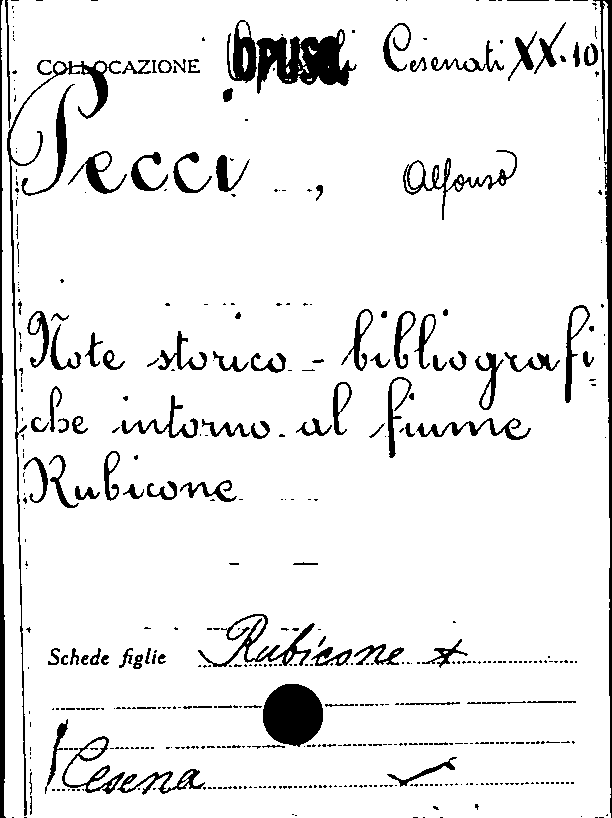 COLLOCAZIONE Opuscoli Cesenati XX.10
Pecci, Alfonso
Note storico-bibliografi=
che intorno al fiume
Rubicone
Schede figlie Rubicone
Cesena